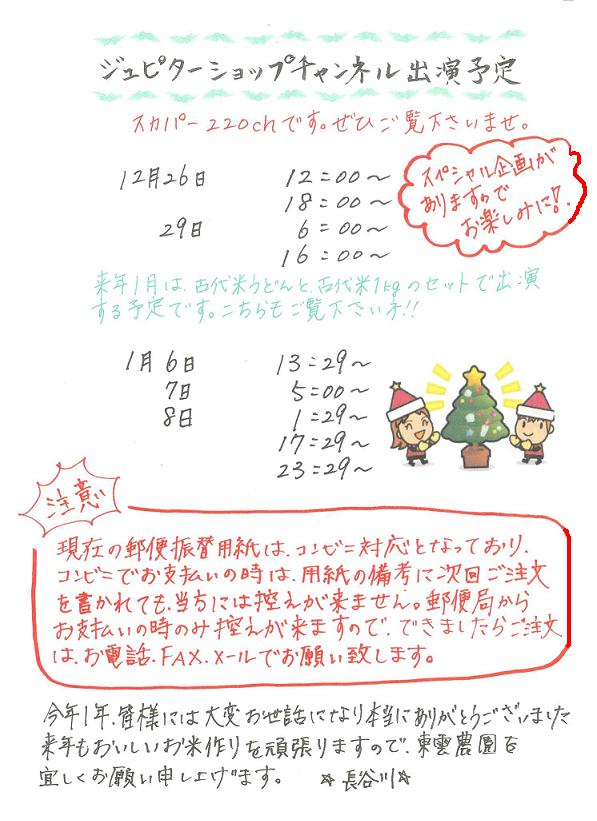 ジュピターショップチャンネル出演予定
スカパー220chです。ぜひご覧下さいませ。
12月26日 12:00〜
18:00〜
29日 6:00〜
16:00〜
スペシャル企画が
ありますので
お楽しみに!.
来年1月は、古代米うどんと、古代米1kgのセットで出演
する予定です。こちらもご覧下さい!!
1月6日 13:29〜
7日 5:00〜
8日 1:29〜
17:29〜
23:29〜
注意
現在の郵便振替用紙は、コンビニ対応となっており、
コンビニでお支払いの時は、用紙の備考に次回ご注文
を書かれても、当方には控えが来ません。郵便局から
お支払いの時のみ控えが来ますので、できましたらご注文
は、お電話、FAX、メールでお願い致します。
今年1年、皆様には大変お世話になり本当にありがとうございました
来年もおいしいお米作りを頑張りますので、東雲農園を
宜しくお願い申し上げます。 ☆長谷川☆